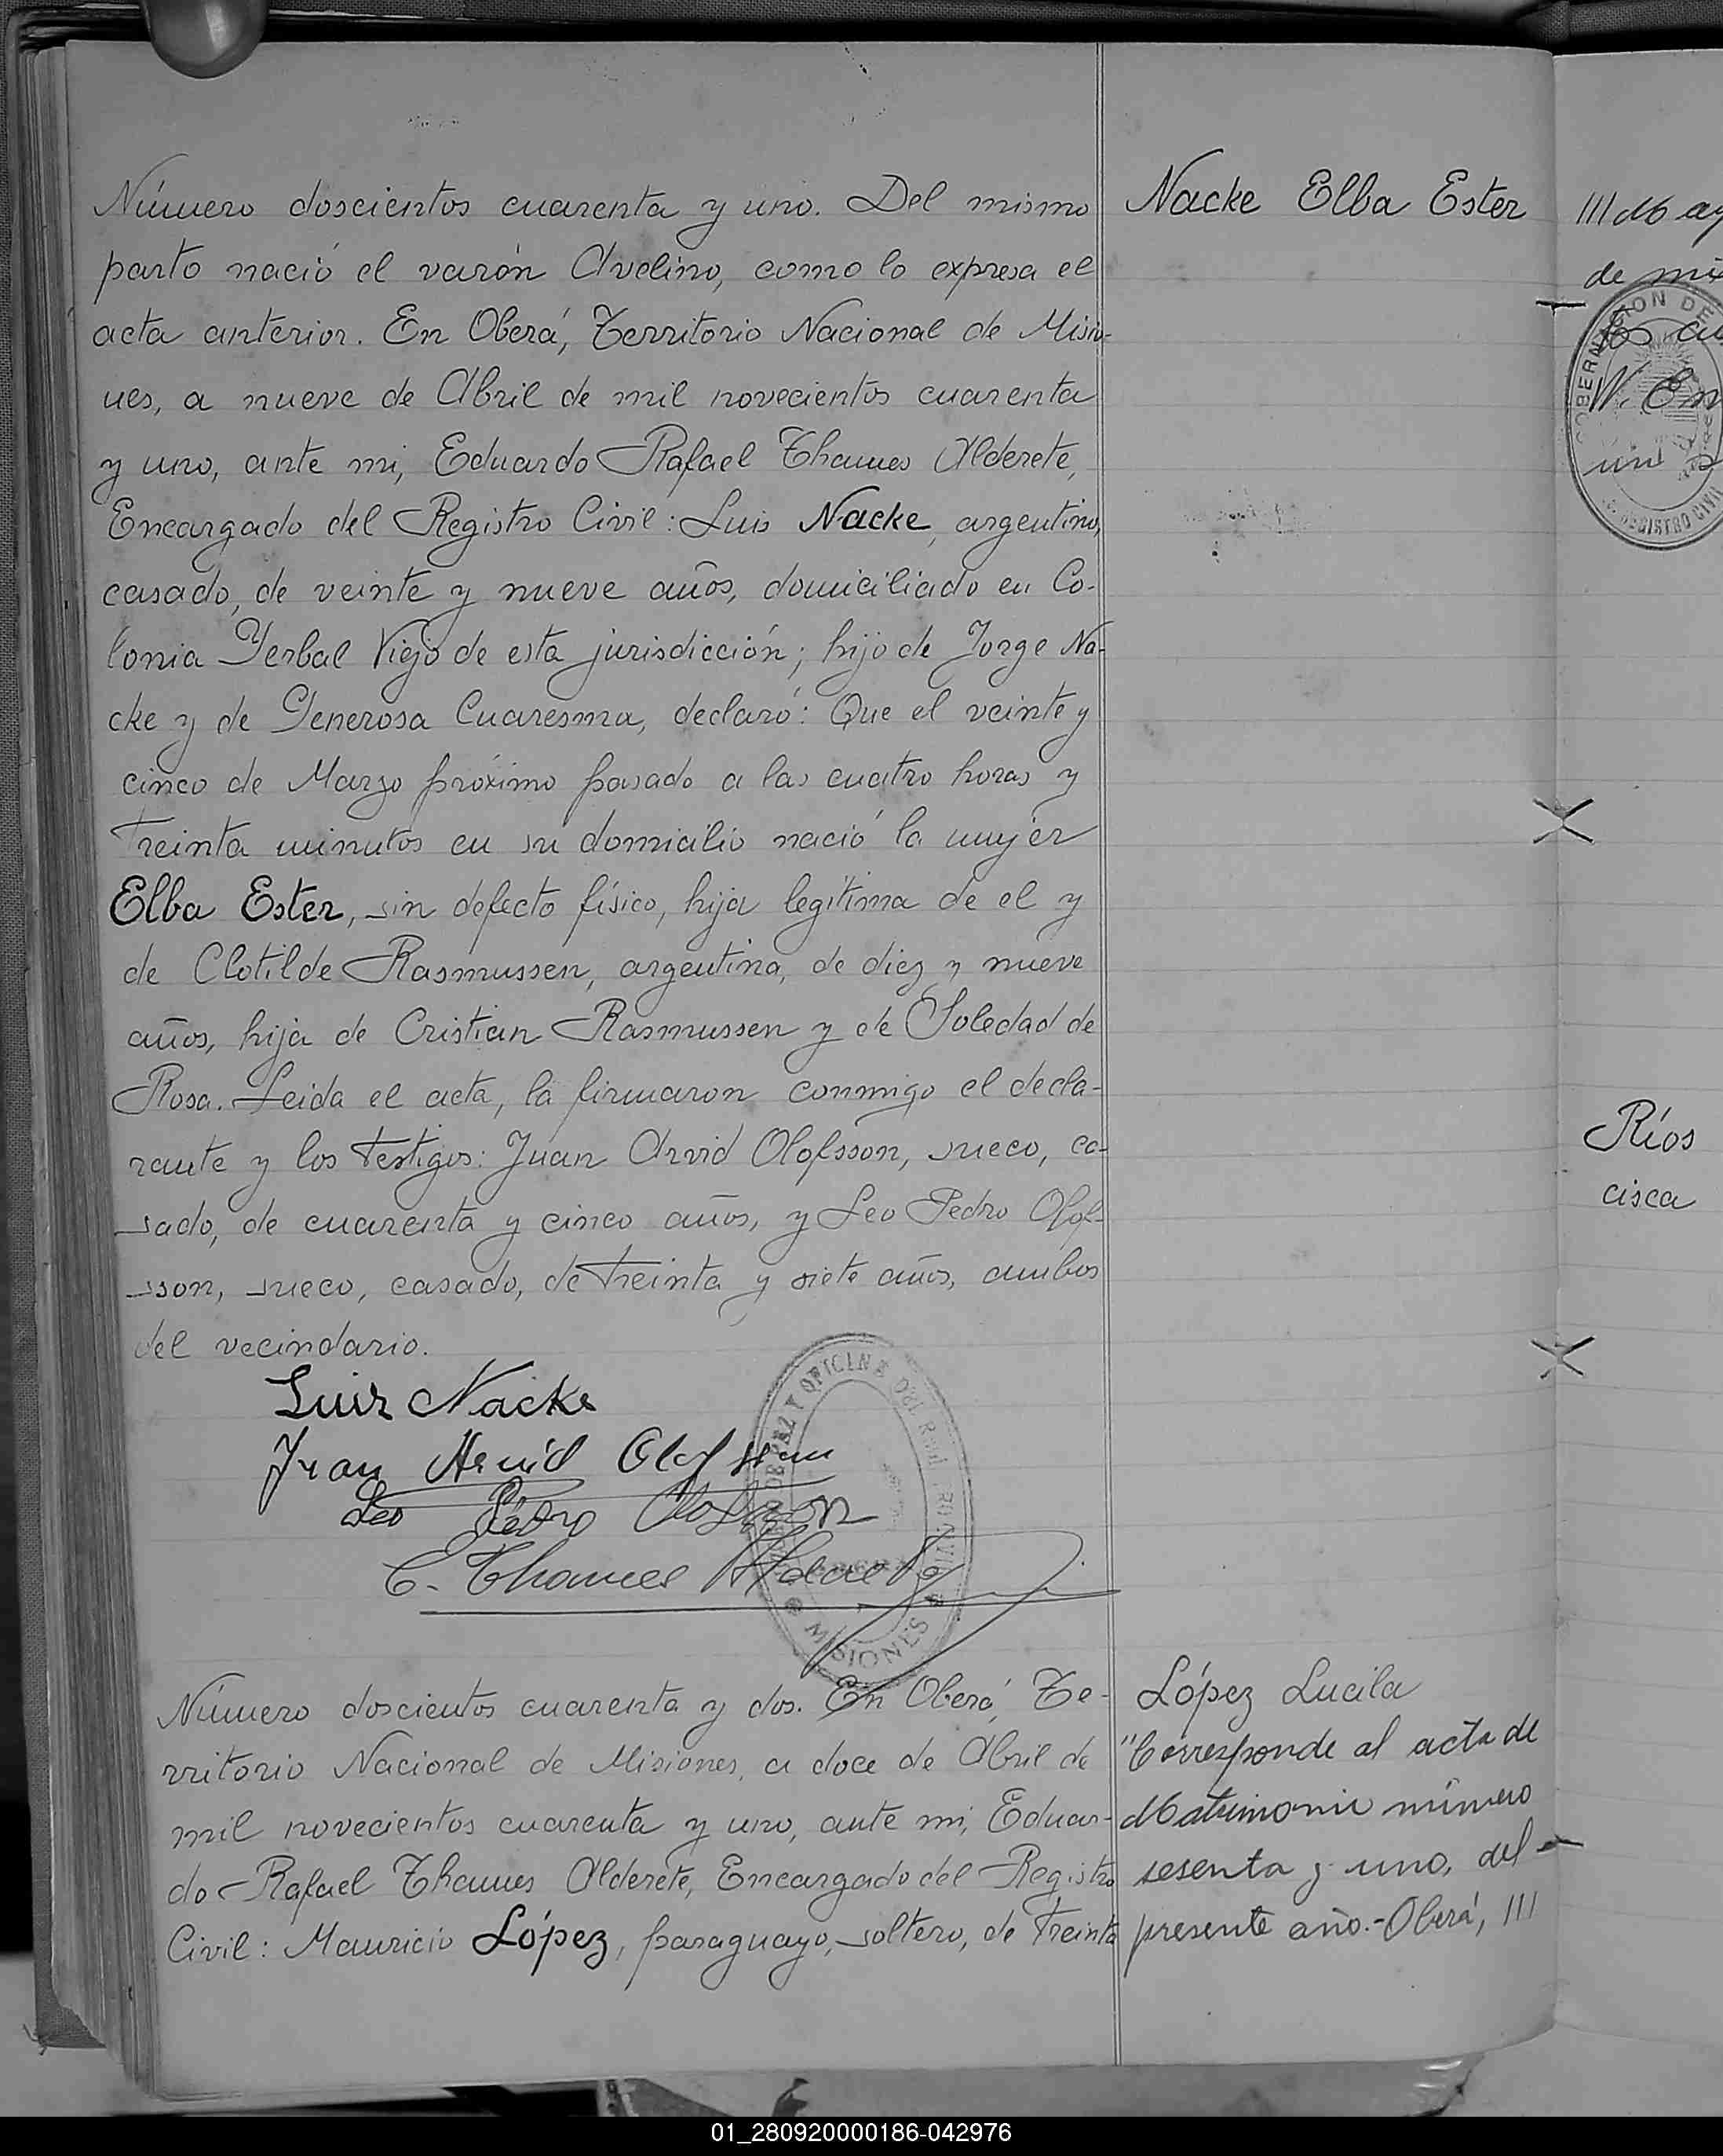 Número doscientos cuarenta y uno. Del mismo
parto nació el varón Avelino, como lo expresa el
acta anterior. En Oberá, Territorio Nacional de Misio-
nes, a nueve de Abril de mil novecientos cuarenta
y uno, ante mi, Eduardo Rafael Thames Alderete,
Encargado del Registro Civil: Luis Nacke, argentino,
casado, de veinte y nueve años, domiciliado en Co-
lonia Yerbal Viejo de esta jurisdicción; hijo de Jorge Na-
cke y de Generosa Cuaresma, declaró: Que el veinte y
cinco de Marzo próximo pasado a las cuatro horas y
treinta minutos en su domicilio nació la mujer
Elba Ester, sin defecto físico, hija legítima de el y
de Clotilde Rasmussen, argentina, de diez y nueve
años, hija de Cristian Rasmussen y de Soledad de
Rosa. Leida el acta, la firmaron conmigo el decla-
rante y los testigos: Juan Arvid Olofsson, sueco, ca-
sado, de cuarenta y cinco años, y Leo Pedro Olof-
sson, sueco, casado, de treinta y siete años, ambos
del vecindario.
Luis Nacke
Juan Arvid Olofsson
Leo Pedro Olofsson
E. Thames Alderete
DE PAZ Y OFICINA DEL
MISIONES
Nacke Elba Ester
Número doscientos cuarenta y dos. En Oberá, Te-
rritorio Nacional de Misiones, a doce de Abril de
mil novecientos cuarenta y uno, ante mi, Eduar-
do Rafael Thames Alderete, Encargado del Registro
Civil: Mauricio López, paraguayo, soltero, de treinta
López Lucila
"Corresponde al acta de
Matrimonio número
sesenta y uno, del
presente año.-Oberá, ///
///May
de mi
W. En
un
GOBERNACION DE
REGISTRO CIVIL
Ríos
cisca
01_280920000186-042976